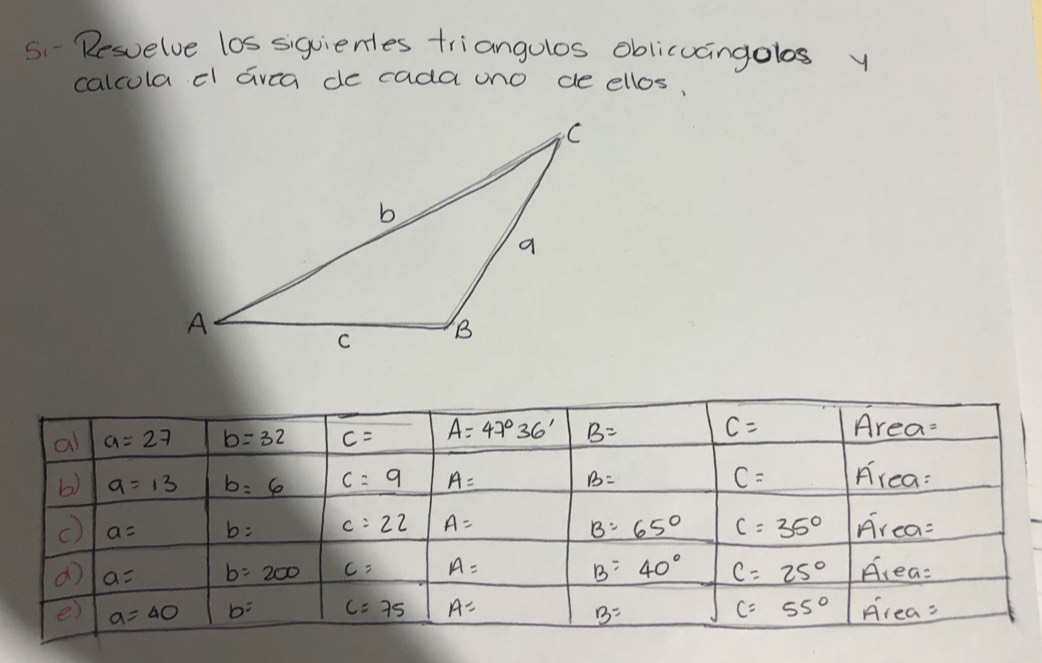 5.- Resuelve los siguientes triangulos oblicuángolos y
calcula el área de cada uno de ellos.
C
b
a
A
B
c
a) a=27 b=32 c= A=47°36' B= C= Área=
b) a=13 b=6 c=9 A= B= C= Área=
c) a= b= c=22 A= B=65° C=35° Área=
d) a= b=200 c= A= B=40° C=25° Área=
e) a=40 b= c=75 A= B= C=55° Área=